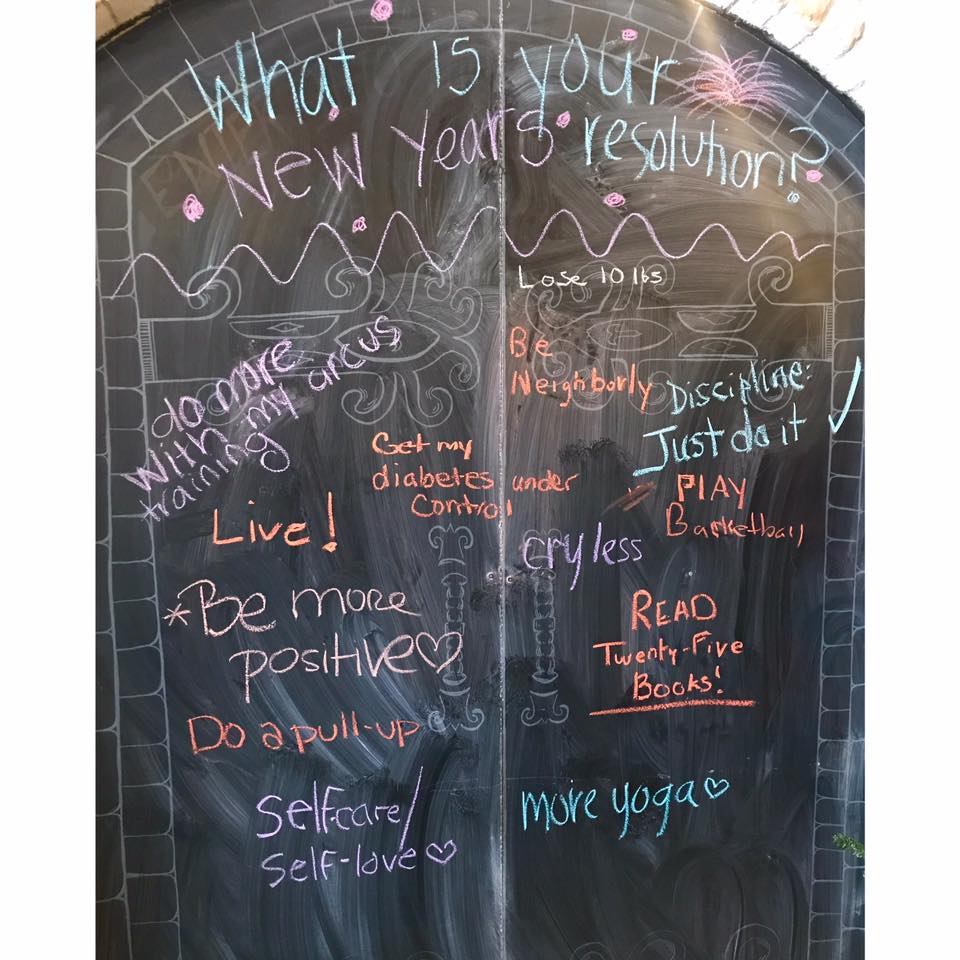 What is your
New Years resolution?
Lose 10 lbs
do more
with my circus
training
Be
Neighborly
Discipline:
Just do it
Get my
diabetes under
Control
PLAY
Barketball
Live!
cry less
*Be more
positive♡
READ
Twenty-Five
Books!
Do a pull-up
Selfcare/
Self-love ♡
more yoga ♡